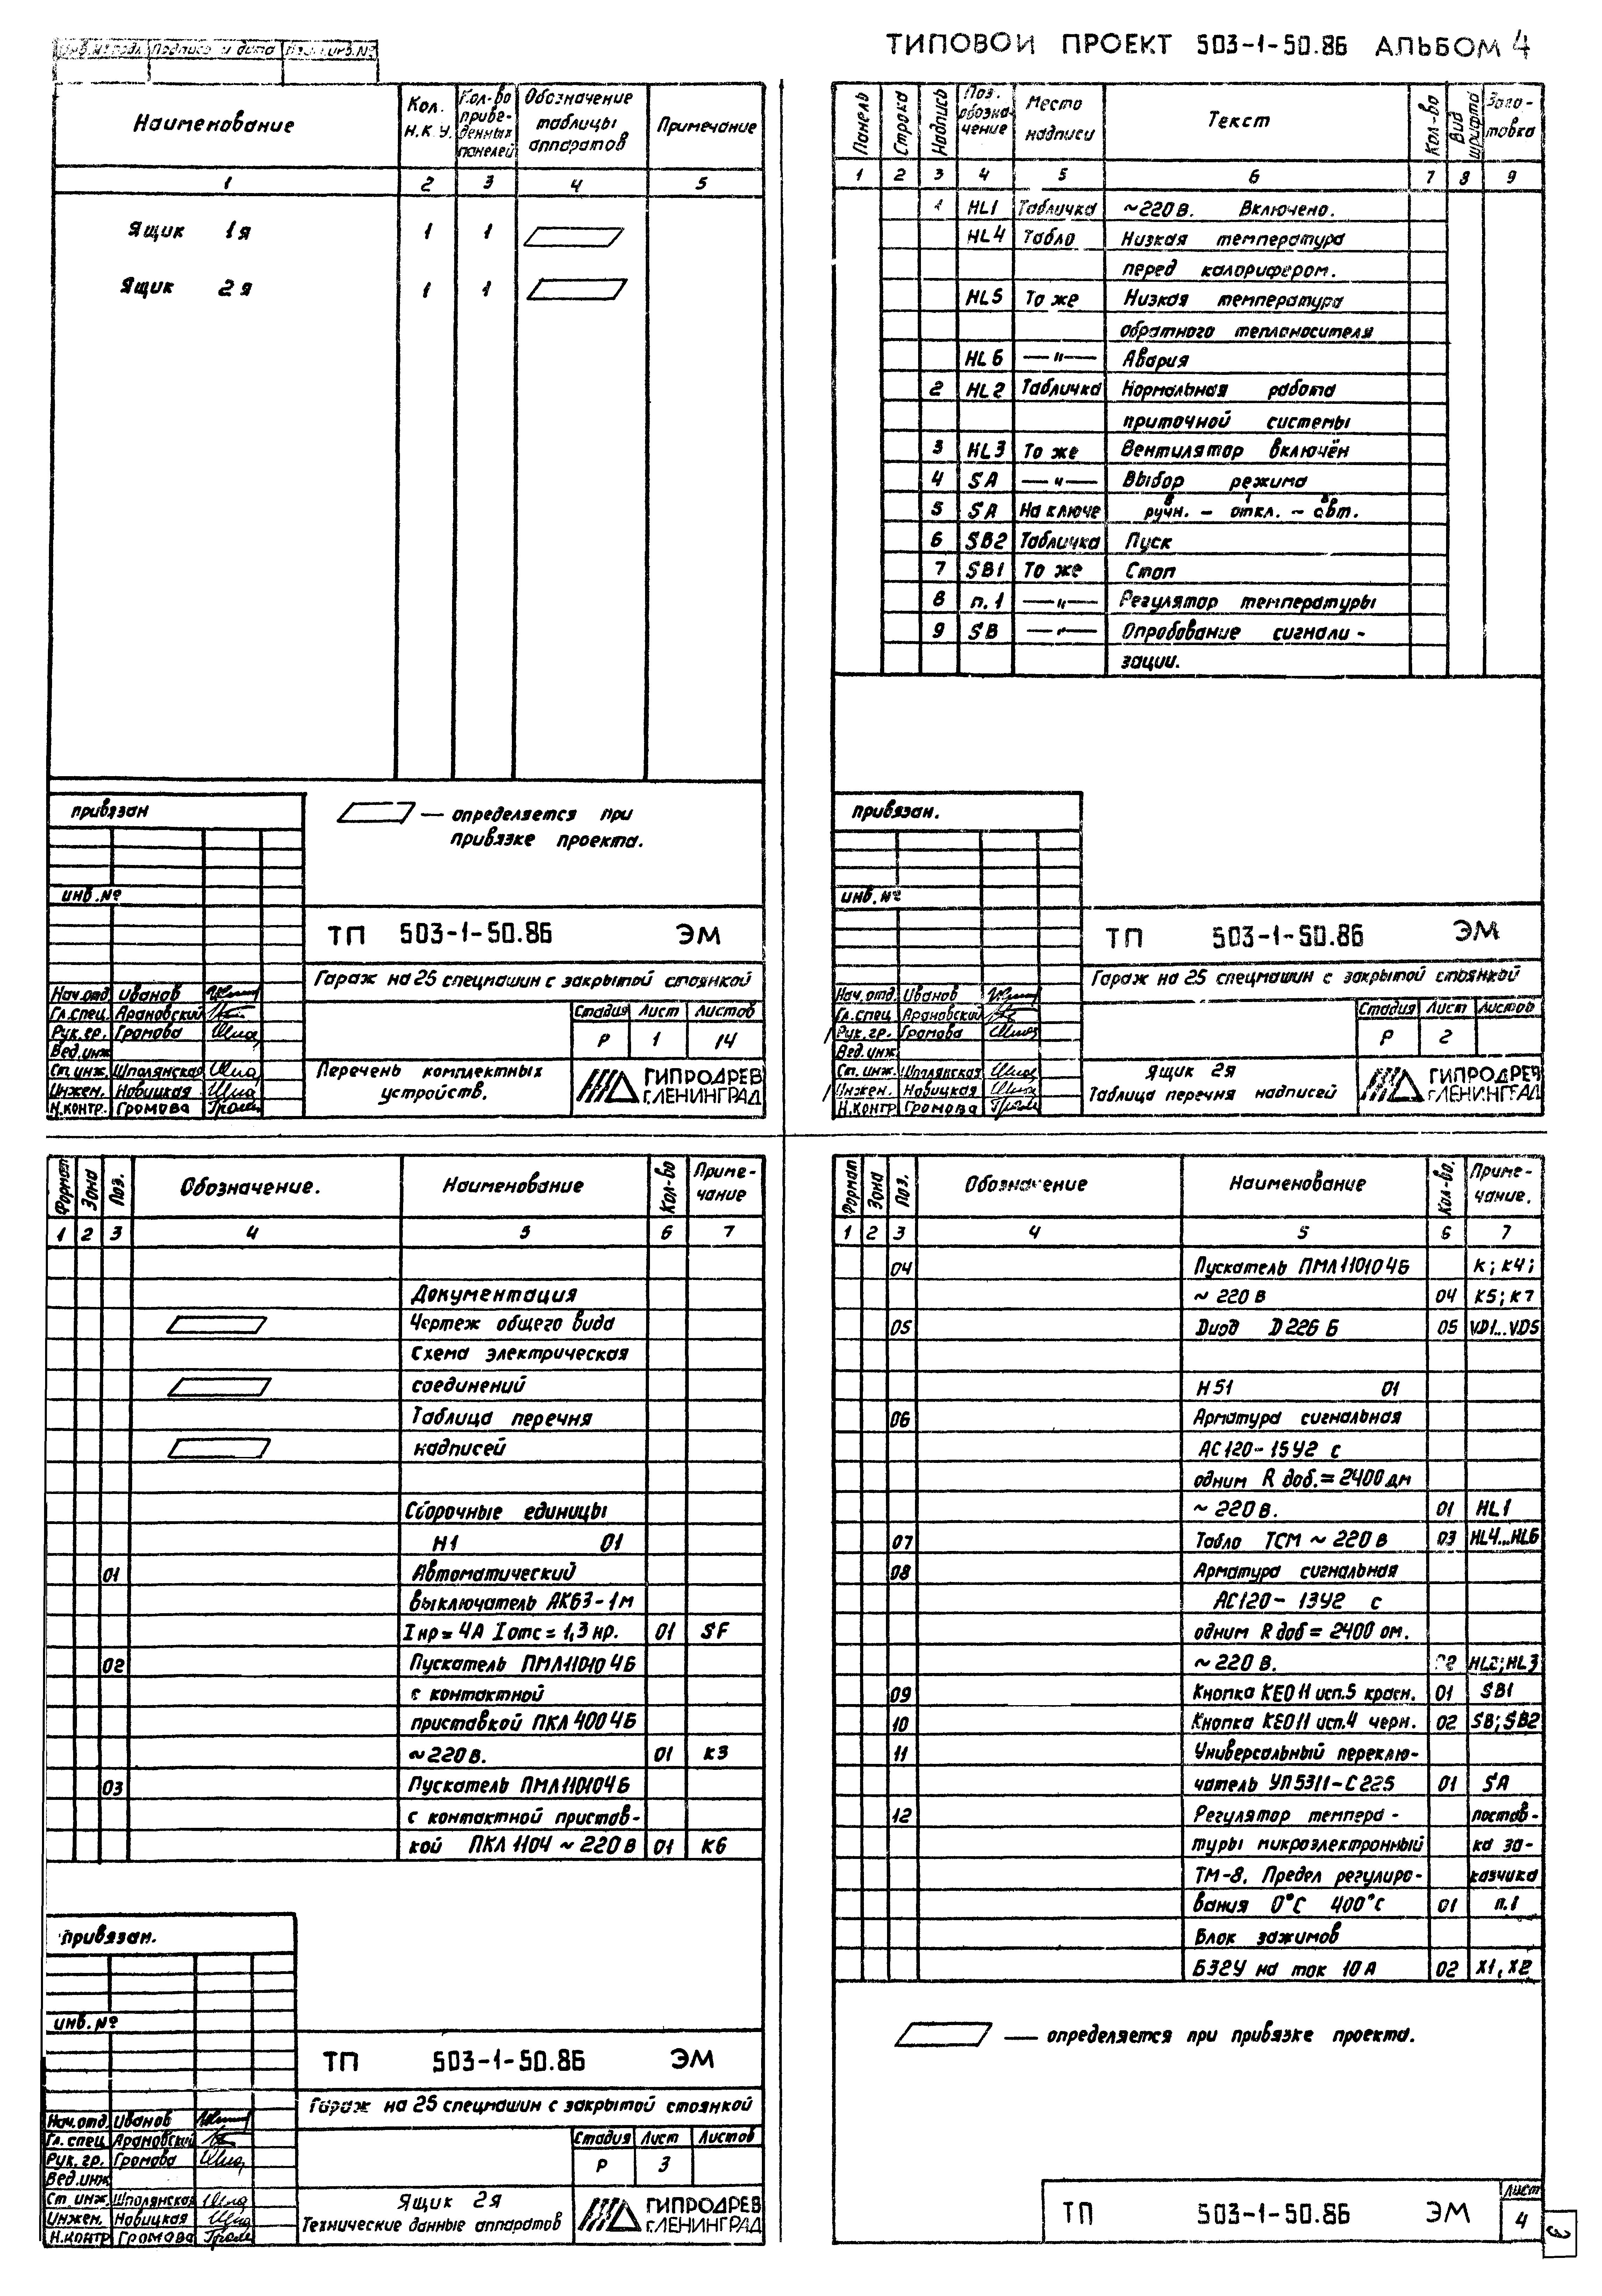 Инв.№ подл. Подпись и дата Взам.инв.№
ТИПОВОЙ ПРОЕКТ 503-1-50.86 АЛЬБОМ 4
Наименование | Кол. Н.К.У. | Кол-во приведенных панелей | Обозначение таблицы аппаратов | Примечание
1 2 3 4 5
Ящик 1я 1 1
Ящик 2я 1 1
привязан
— определяется при
привязке проекта.
инв.№
ТП 503-1-50.86 ЭМ
Гараж на 25 спецмашин с закрытой стоянкой
Нач.отд. Иванов
Гл.спец. Арановский
Рук.гр. Громова
Вед.инж
Ст.инж. Шполянская
Инжен. Новицкая
Н.контр. Громова
Стадия Лист Листов
Р 1 14
Перечень комплектных
устройств.
ГИПРОДРЕВ
Г.ЛЕНИНГРАД
Панель | Строка | Надпись | Поз. обозначение | Место надписи | Текст | Кол-во | Вид шрифта | Заготовка
1 2 3 4 5 6 7 8 9
1 HL1 Табличка ~220 в. Включено.
HL4 Табло Низкая температура
перед калорифером.
HL5 То же Низкая температура
обратного теплоносителя
HL6 —"— Авария
2 HL2 Табличка Нормальная работа
приточной системы
3 HL3 То же Вентилятор включён
4 SA —"— Выбор режима
5 SA На ключе ручн. - откл. - авт.
6 SB2 Табличка Пуск
7 SB1 То же Стоп
8 п.1 —"— Регулятор температуры
9 SB —"— Опробование сигнали-
зации.
привязан.
инв.№
ТП 503-1-50.86 ЭМ
Гараж на 25 спецмашин с закрытой стоянкой
Нач.отд. Иванов
Гл.спец Арановский
Рук.гр. Громова
Вед.инж
Ст.инж. Шполянская
Инжен. Новицкая
Н.контр Громова
Стадия Лист Листов
Р 2
Ящик 2я
Таблица перечня надписей
ГИПРОДРЕВ
Г.ЛЕНИНГРАД
Формат | Зона | Поз. | Обозначение. | Наименование | Кол-во | Примечание
1 2 3 4 5 6 7
Документация
Чертеж общего вида
Схема электрическая
соединений
Таблица перечня
надписей
Сборочные единицы
Н1 01
01 Автоматический
выключатель АК63-1м
Iнр=4А Iотс=1,3нр. 01 SF
02 Пускатель ПМЛ11010 4Б
с контактной
приставкой ПКЛ 400 4Б
~220 в. 01 К3
03 Пускатель ПМЛ110104Б
с контактной пристав-
кой ПКЛ 1104 ~ 220 в 01 К6
привязан.
инв.№
ТП 503-1-50.86 ЭМ
Гараж на 25 спецмашин с закрытой стоянкой
Нач.отд. Иванов
Гл.спец Арановский
Рук.гр. Громова
Вед.инж
Ст.инж. Шполянская
Инжен. Новицкая
Н.контр Громова
Стадия Лист Листов
Р 3
Ящик 2я
Технические данные аппаратов
ГИПРОДРЕВ
Г.ЛЕНИНГРАД
Формат | Зона | Поз. | Обозначение | Наименование | Кол-во. | Примечание.
1 2 3 4 5 6 7
04 Пускатель ПМЛ110104Б К; К4;
~ 220 в 04 К5; К7
05 Диод D 226 Б 05 VD1...VD5
Н51 01
06 Арматура сигнальная
АС120-15У2 с
одним R доб.=2400 дм
~ 220 в. 01 HL1
07 Табло ТСМ ~ 220 в 03 HL4...HL6
08 Арматура сигнальная
АС120-13У2 с
одним R доб=2400 ом.
~ 220 в. HL2;HL3
09 Кнопка КЕ011 исп.5 красн. 01 SB1
10 Кнопка КЕ011 исп.4 черн. 02 SB; SB2
11 Универсальный переклю-
чатель УП5311-С225 01 SA
12 Регулятор темпера- постав-
туры микроэлектронный ка за-
ТМ-8. Предел регулиро- казчика
вания 0°С 400°с 01 п.1
Блок зажимов
БЗ2У на ток 10 А 02 Х1, Х2
— определяется при привязке проекта.
ТП 503-1-50.86 ЭМ
Лист
4
3